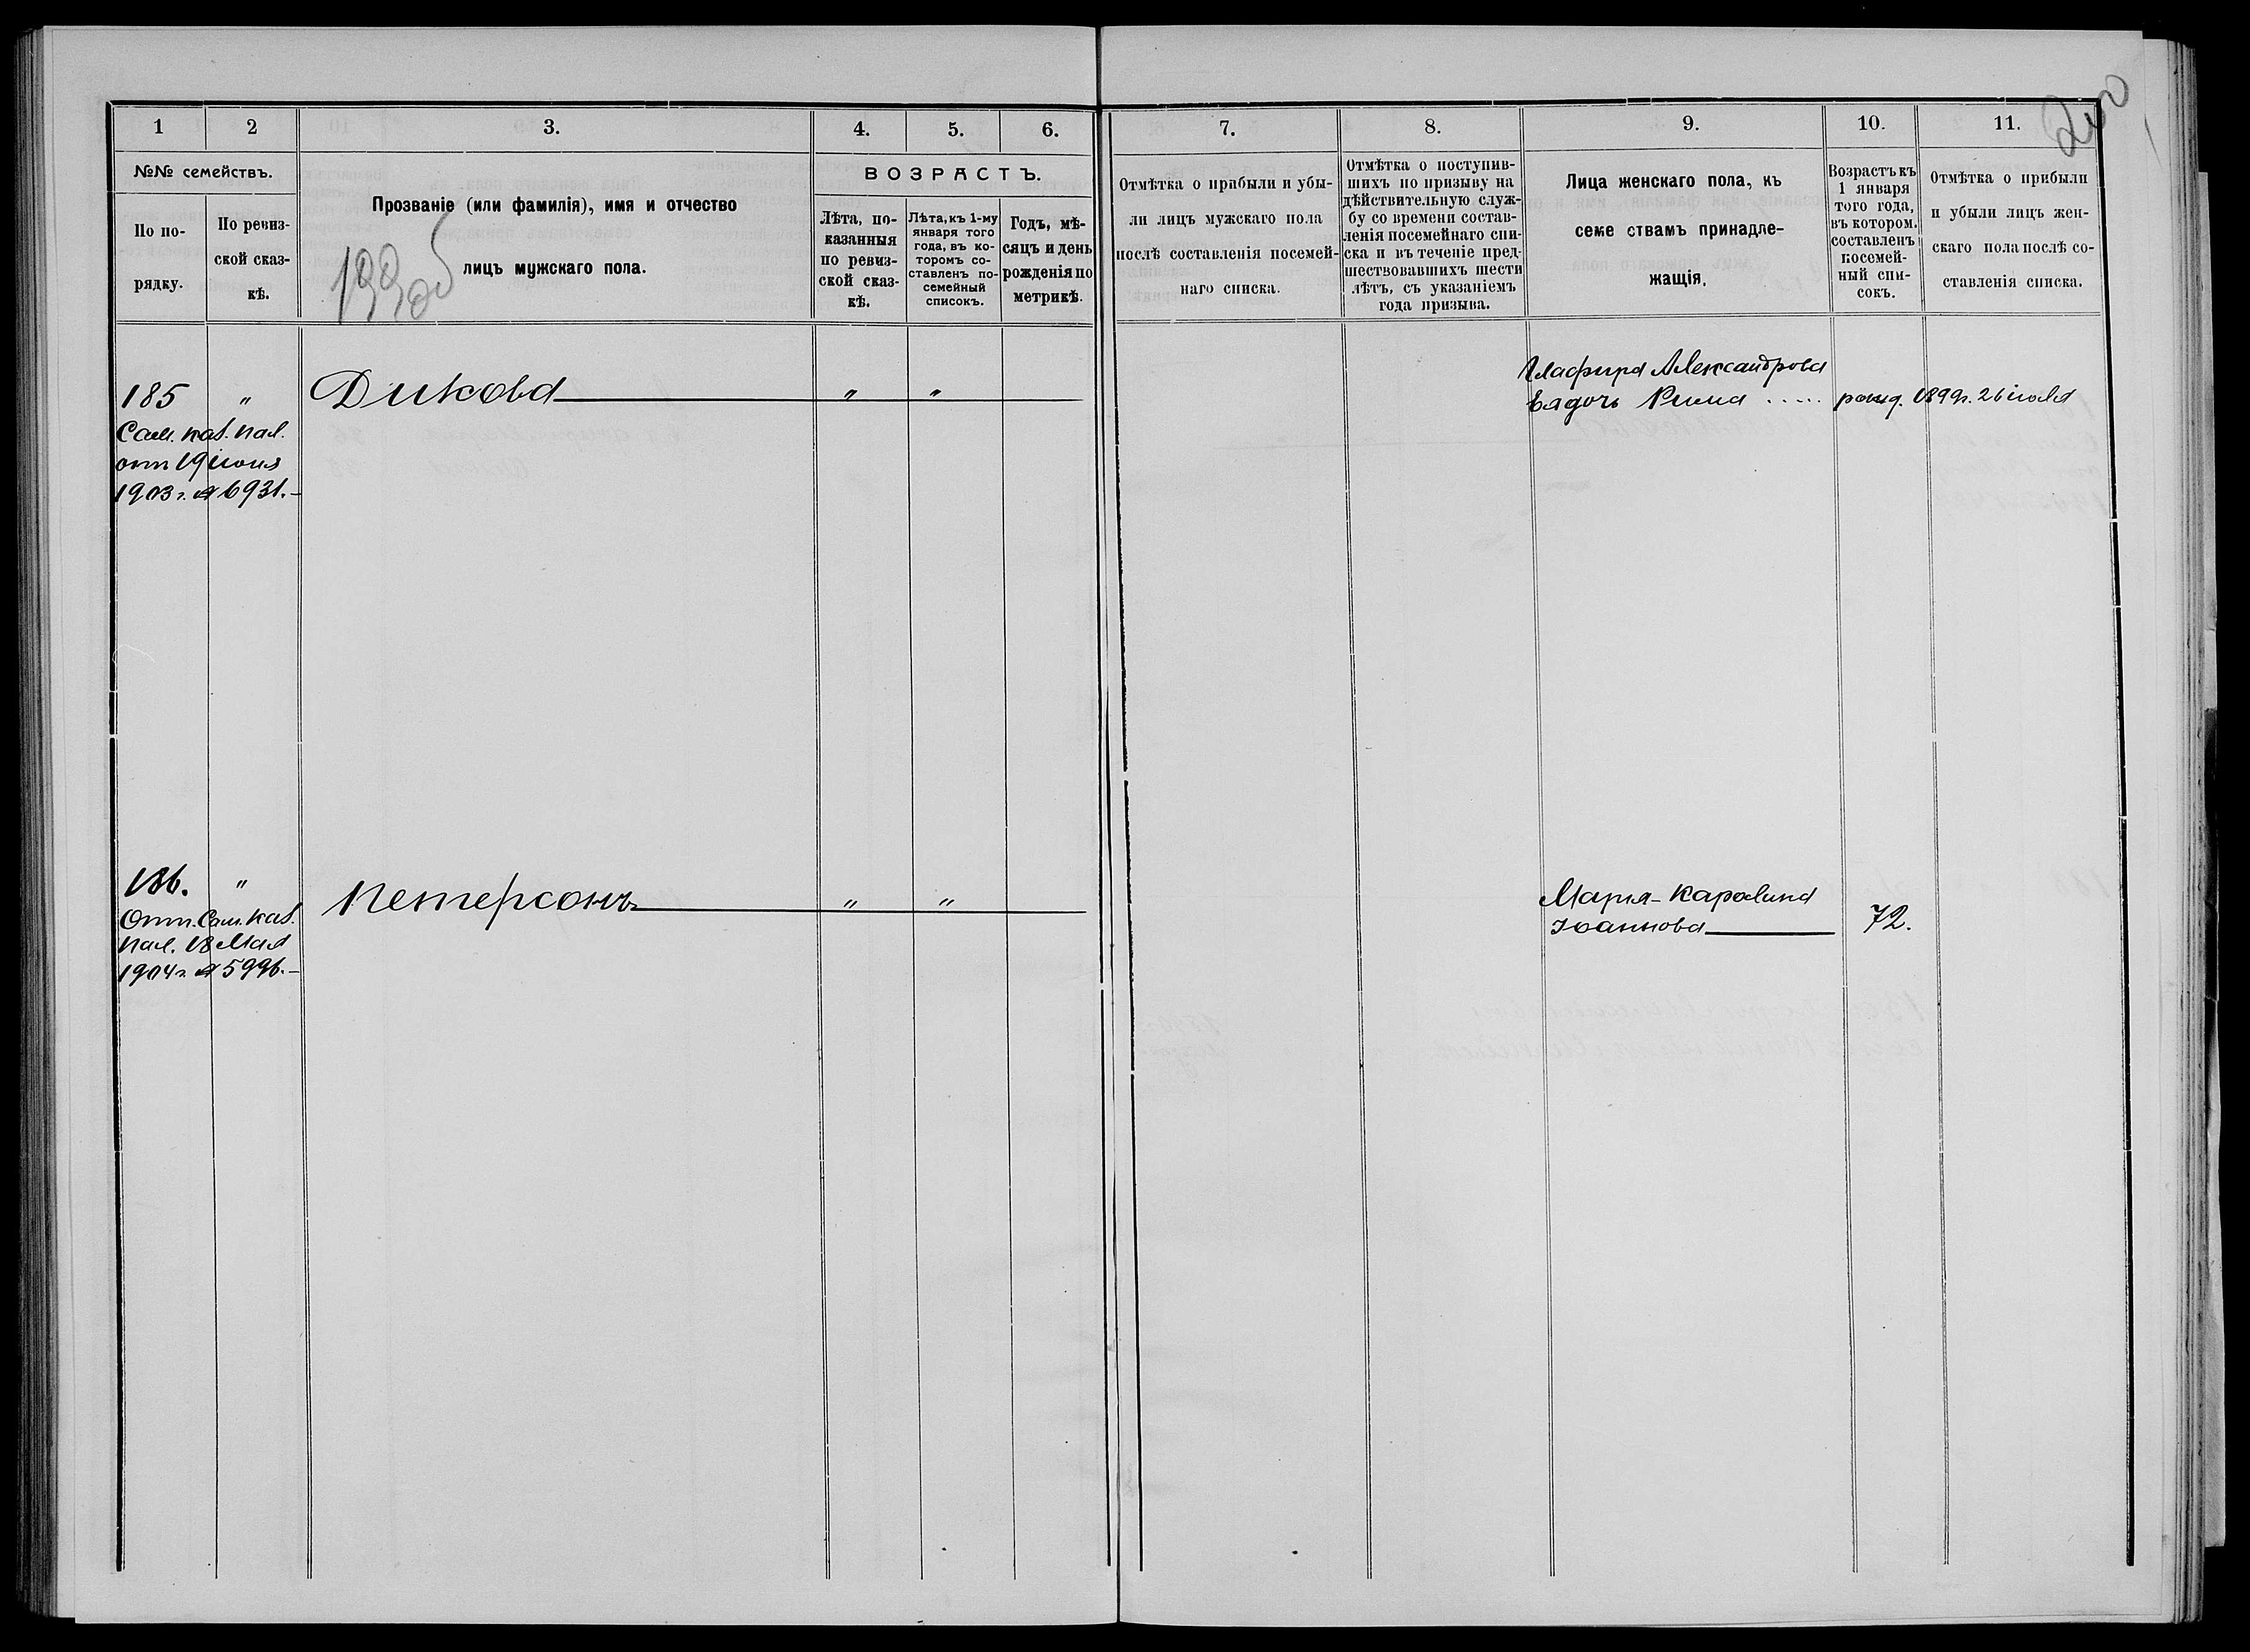 200
1
2
3.
4.
5.
6.
7.
8.
9.
10.
11.
№№ семействъ.
По по-
рядку.
По ревиз-
ской сказ-
кѣ.
Прозваніе (или фамилія), имя и отчество
лицъ мужскаго пола.
199об
ВОЗРАСТЪ.
Лѣта, по-
казанныя
по ревиз-
ской сказ-
кѣ.
Лѣта, къ 1-му
января того
года, въ ко-
торомъ со-
ставленъ по-
семейный
списокъ.
Годъ, мѣ-
сяцъ и день
рожденія по
метрикѣ.
Отмѣтка о прибыли и убы-
ли лицъ мужскаго пола
послѣ составленія посемей-
наго списка.
Отмѣтка о поступив-
шихъ по призыву на
дѣйствительную служ-
бу со времени состав-
ленія посемейнаго спи-
ска и въ теченіе пред-
шествовавшихъ шести
лѣтъ, съ указаніемъ
года призыва.
Лица женскаго пола, къ
семе ствамъ принадле-
жащія.
Возрастъ къ
1 января
того года,
въ котором.
составленъ
посемей-
ный спи-
сокъ.
Отмѣтка о прибыли
и убыли лицъ жен-
скаго пола послѣ со-
ставленія списка.
185 "
Сам. каз. пал.
отп 19 іюня
1903 г. № 6931.-
Дикова " "
Глафира Александрова
Ея дочь Римма ..... рожд. 1899г. 26 іюля
186. "
Отп. Сам. каз.
пал. 18 Мая
1904 г. № 5996.-
Петерсонъ " "
Марія-Каролина
Іоаннова 72.